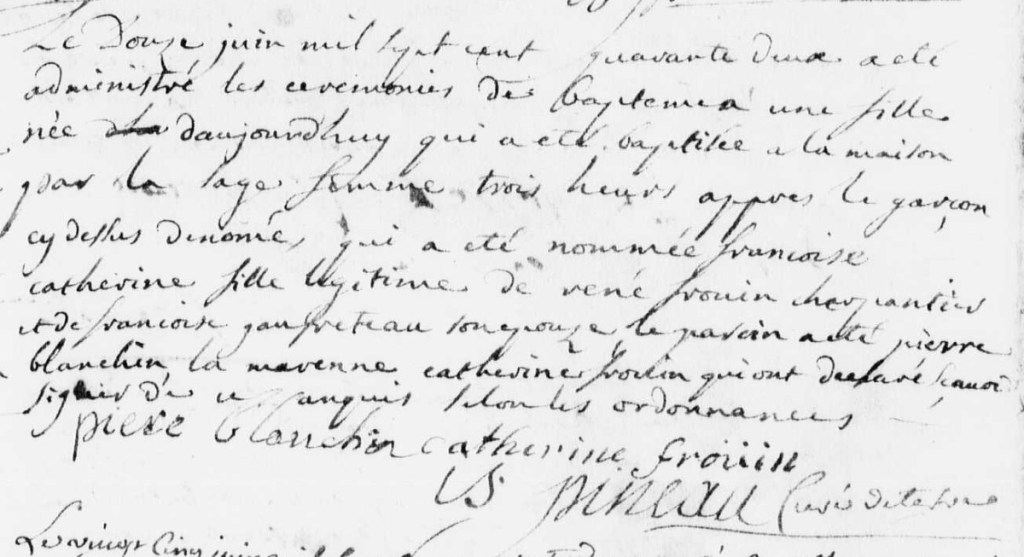 Le Douze juin mil sept cent quarante deux a eté
administré les ceremonies de baptemea une fille
née daujourdhuy qui a eté baptisée a la maison
par la sage femme trois heurs appres le garçon
cy dessus denomés qui a eté nommée francoise
catherine fille legitime de rené frouin charpantier
et de francoise gaufreteau son epouze le parain a eté pierre
blanchin la marenne catherine frouin qui ont declaré scavoir
signer de ce anquis selon les ordonnances
piere blanchin catherine froüin
pineau Curé de